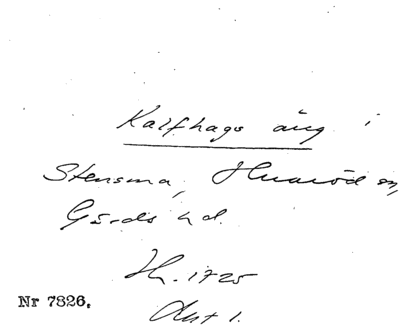 Kalfhags äng i
Stensma, Huaröd sn,
Gärds hd.
Hh. 1725
Akt 1.
Nr 7326.